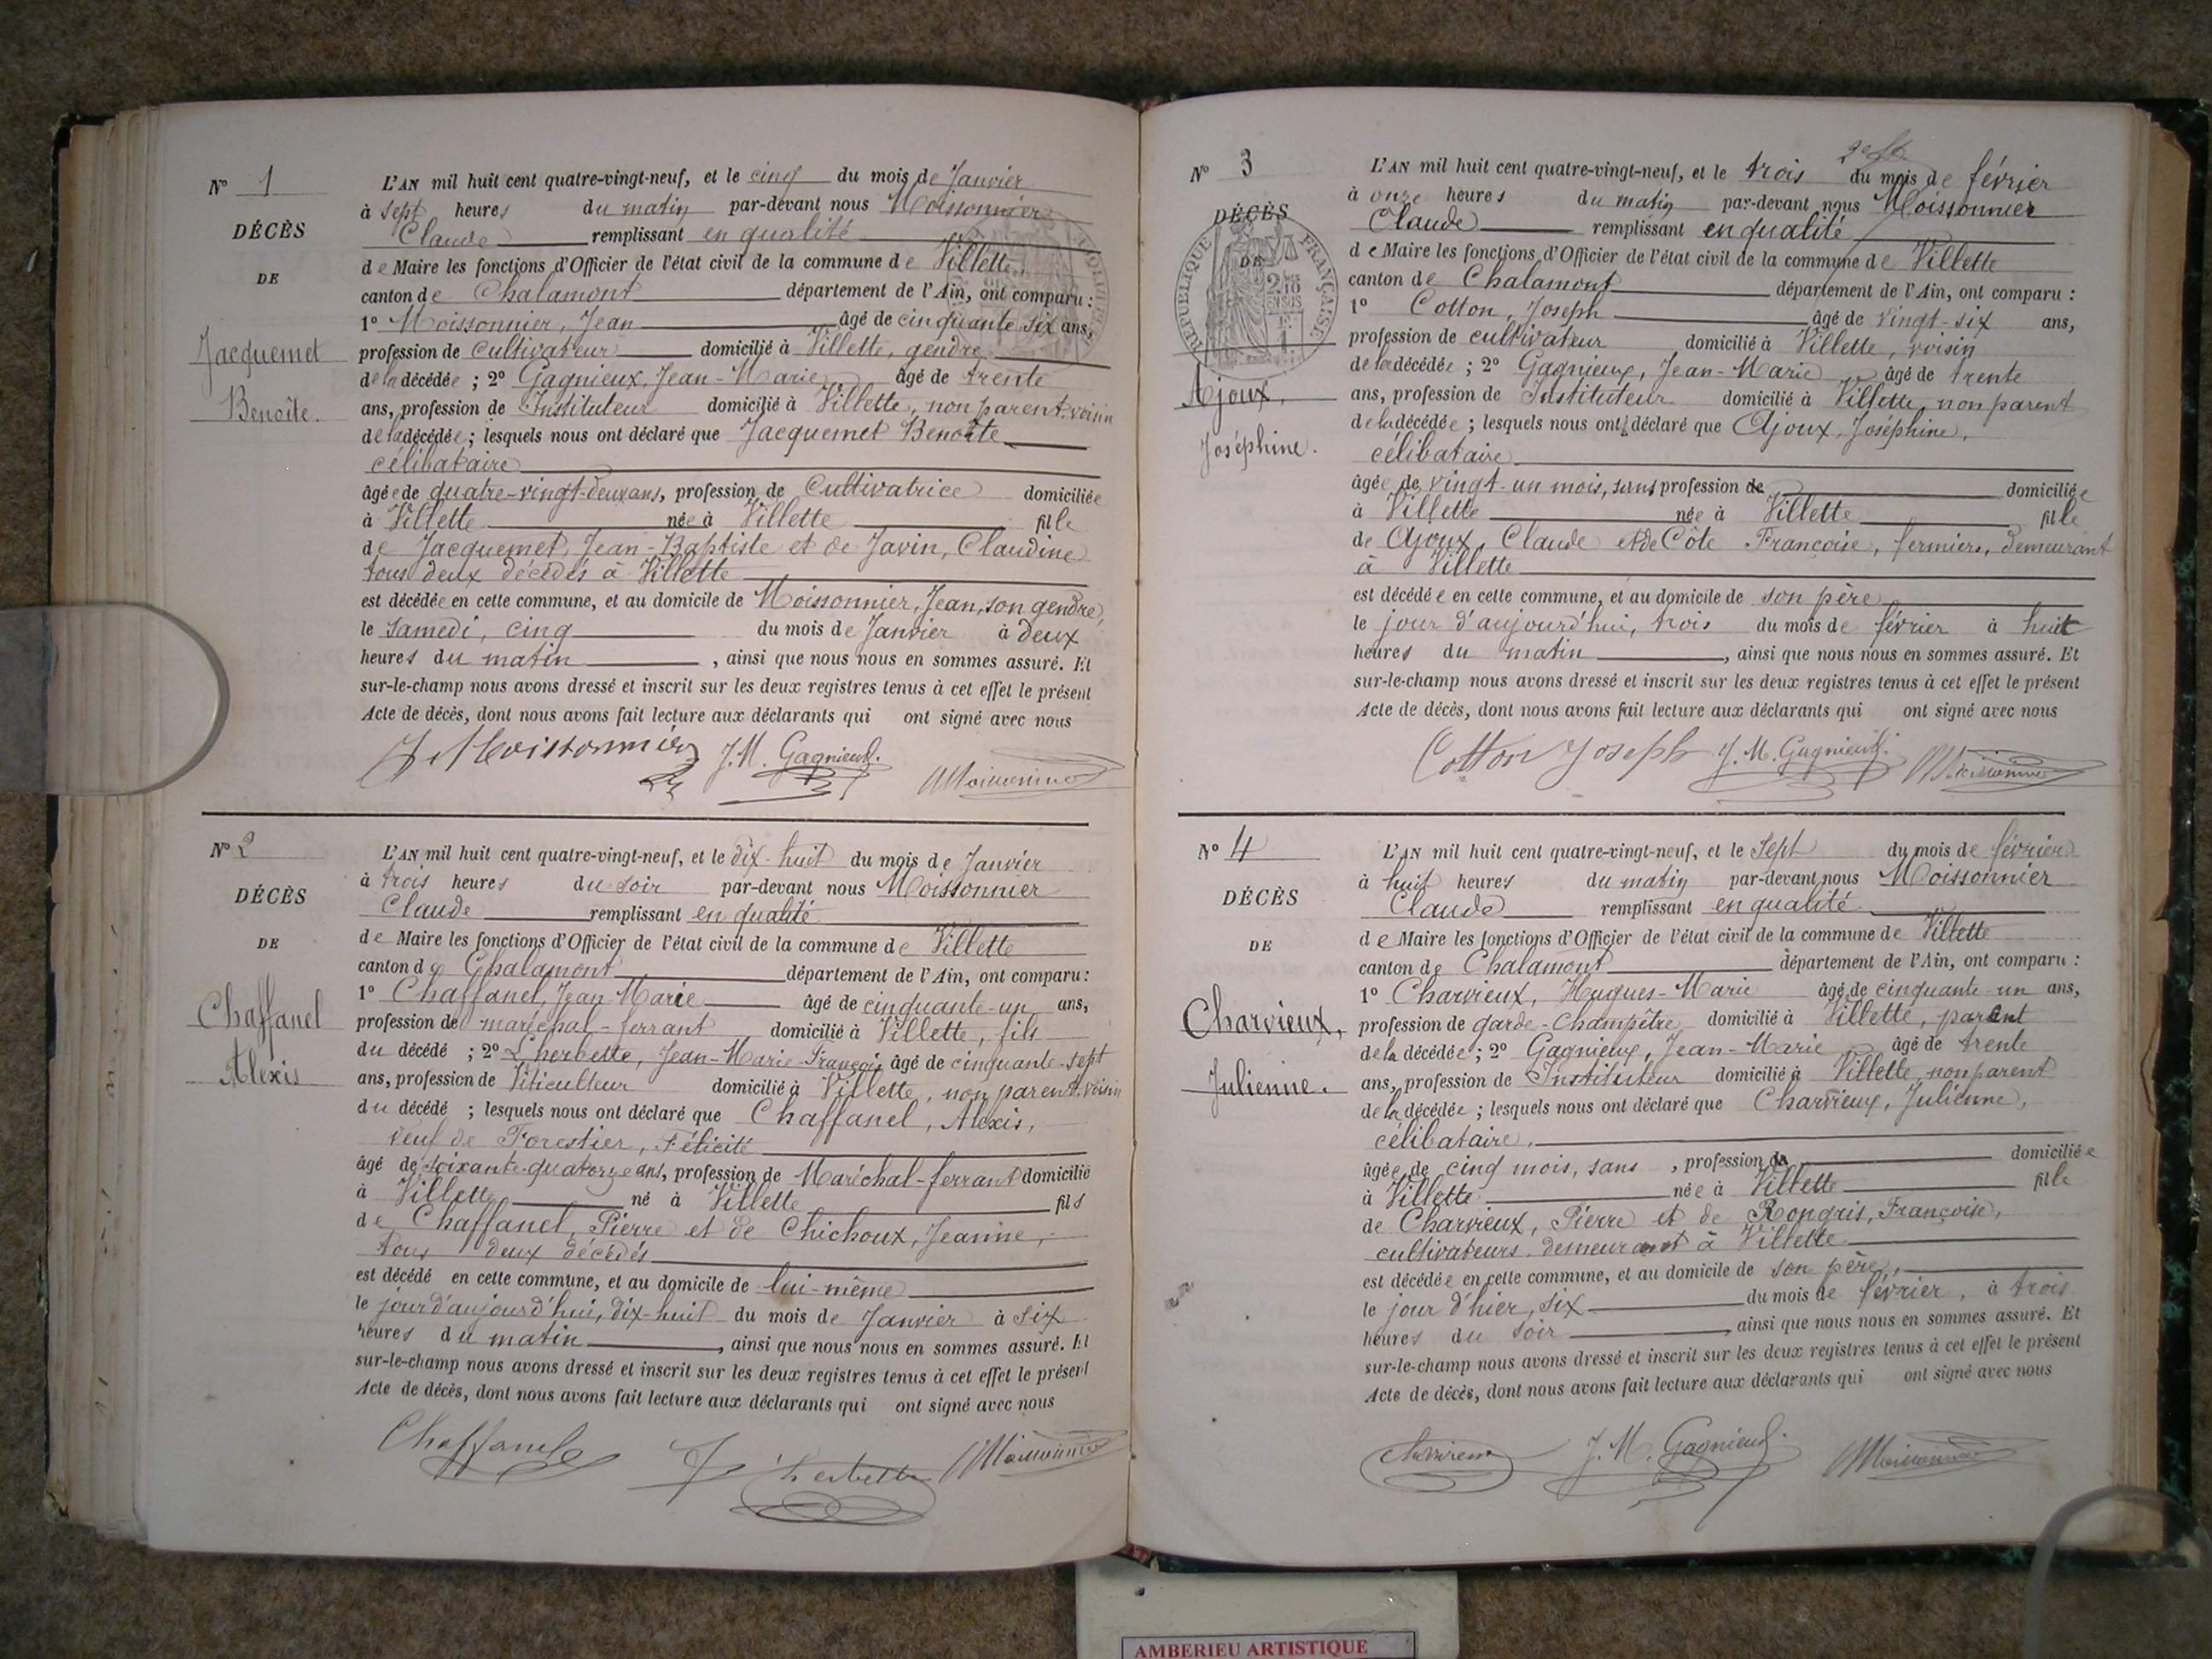 N° 1
DÉCÈS
DE
Jacquemet
Benoîte.
L'AN mil huit cent quatre-vingt-neuf, et le cinq du mois de Janvier
à sept heures du matin par-devant nous Moissonnier
Claude remplissant en qualité
de Maire les fonctions d'Officier de l'état civil de la commune de Villette
canton de Chalamont département de l'Ain, ont comparu :
1° Moissonnier, Jean âgé de cinquante six ans,
profession de Cultivateur domicilié à Villette, gendre
de la décédée ; 2° Gagnieux, Jean-Marie âgé de trente
ans, profession de Instituteur domicilié à Villette, non parent, voisin
de la décédée ; lesquels nous ont déclaré que Jacquemet Benoîte
célibataire
âgée de quatre-vingt-deux ans, profession de Cultivatrice domiciliée
à Villette née à Villette fille
de Jacquemet, Jean-Baptiste et de Javin, Claudine
tous deux décédés à Villette
est décédée en cette commune, et au domicile de Moissonnier, Jean, son gendre,
le Samedi, cinq du mois de Janvier à deux
heures du matin , ainsi que nous nous en sommes assuré. Et
sur-le-champ nous avons dressé et inscrit sur les deux registres tenus à cet effet le présent
Acte de décès, dont nous avons fait lecture aux déclarants qui ont signé avec nous
J. Moissonnier J. M. Gagnieux. Moissonnier
N° 2
DÉCÈS
DE
Chaffanel
Alexis
L'AN mil huit cent quatre-vingt-neuf, et le dix-huit du mois de Janvier
à trois heures du soir par-devant nous Moissonnier
Claude remplissant en qualité
de Maire les fonctions d'Officier de l'état civil de la commune de Villette
canton de Chalamont département de l'Ain, ont comparu :
1° Chaffanel, Jean Marie âgé de cinquante-un ans,
profession de maréchal-ferrant domicilié à Villette, fils
du décédé ; 2° Lherbette, Jean-Marie-François âgé de cinquante-sept
ans, profession de Viticulteur domicilié à Villette, non parent, voisin
du décédé ; lesquels nous ont déclaré que Chaffanel, Alexis,
veuf de Forestier, Félicité
âgé de soixante-quatorze ans, profession de Maréchal-ferrant domicilié
à Villette né à Villette fils
de Chaffanel, Pierre et de Chichoux, Jeanne,
tous deux décédés
est décédé en cette commune, et au domicile de lui-même
le jour d'aujourd'hui, dix-huit du mois de Janvier à six
heures du matin , ainsi que nous nous en sommes assuré. Et
sur-le-champ nous avons dressé et inscrit sur les deux registres tenus à cet effet le présent
Acte de décès, dont nous avons fait lecture aux déclarants qui ont signé avec nous
Chaffanel Lherbette Moissonnier
N° 3
DÉCÈS
DE
RÉPUBLIQUE FRANÇAISE
Ajoux,
Joséphine.
L'AN mil huit cent quatre-vingt-neuf, et le trois du mois de février
à onze heures du matin par-devant nous Moissonnier
Claude remplissant en qualité
de Maire les fonctions d'Officier de l'état civil de la commune de Villette
canton de Chalamont département de l'Ain, ont comparu :
1° Cotton, Joseph âgé de vingt-six ans,
profession de cultivateur domicilié à Villette, voisin
de la décédée ; 2° Gagnieux, Jean-Marie âgé de trente
ans, profession de Instituteur domicilié à Villette, non parent
de la décédée ; lesquels nous ont déclaré que Ajoux, Joséphine,
célibataire
âgée de vingt-un mois, sans profession de domiciliée
à Villette née à Villette fille
de Ajoux, Claude et de Côte Françoise, fermiers, demeurant
à Villette
est décédée en cette commune, et au domicile de son père
le jour d'aujourd'hui, trois du mois de février à huit
heures du matin , ainsi que nous nous en sommes assuré. Et
sur-le-champ nous avons dressé et inscrit sur les deux registres tenus à cet effet le présent
Acte de décès, dont nous avons fait lecture aux déclarants qui ont signé avec nous
Cotton Joseph J. M. Gagnieux. Moissonnier
N° 4
DÉCÈS
DE
Charvieux,
Julienne.
L'AN mil huit cent quatre-vingt-neuf, et le Sept du mois de février
à huit heures du matin par-devant nous Moissonnier
Claude remplissant en qualité
de Maire les fonctions d'Officier de l'état civil de la commune de Villette
canton de Chalamont département de l'Ain, ont comparu :
1° Charvieux, Hugues-Marie âgé de cinquante-un ans,
profession de garde-champêtre domicilié à Villette, parent
de la décédée ; 2° Gagnieux, Jean-Marie âgé de trente
ans, profession de Instituteur domicilié à Villette, non parent
de la décédée ; lesquels nous ont déclaré que Charvieux, Julienne,
célibataire,
âgée de cinq mois, sans , profession de domiciliée
à Villette née à Villette fille
de Charvieux, Pierre et de Rongris, Françoise,
cultivateurs demeurant à Villette
est décédée en cette commune, et au domicile de son père,
le jour d'hier, six du mois de février, à trois
heures du soir , ainsi que nous nous en sommes assuré. Et
sur-le-champ nous avons dressé et inscrit sur les deux registres tenus à cet effet le présent
Acte de décès, dont nous avons fait lecture aux déclarants qui ont signé avec nous
Charvieux J. M. Gagnieux. Moissonnier
AMBERIEU ARTISTIQUE